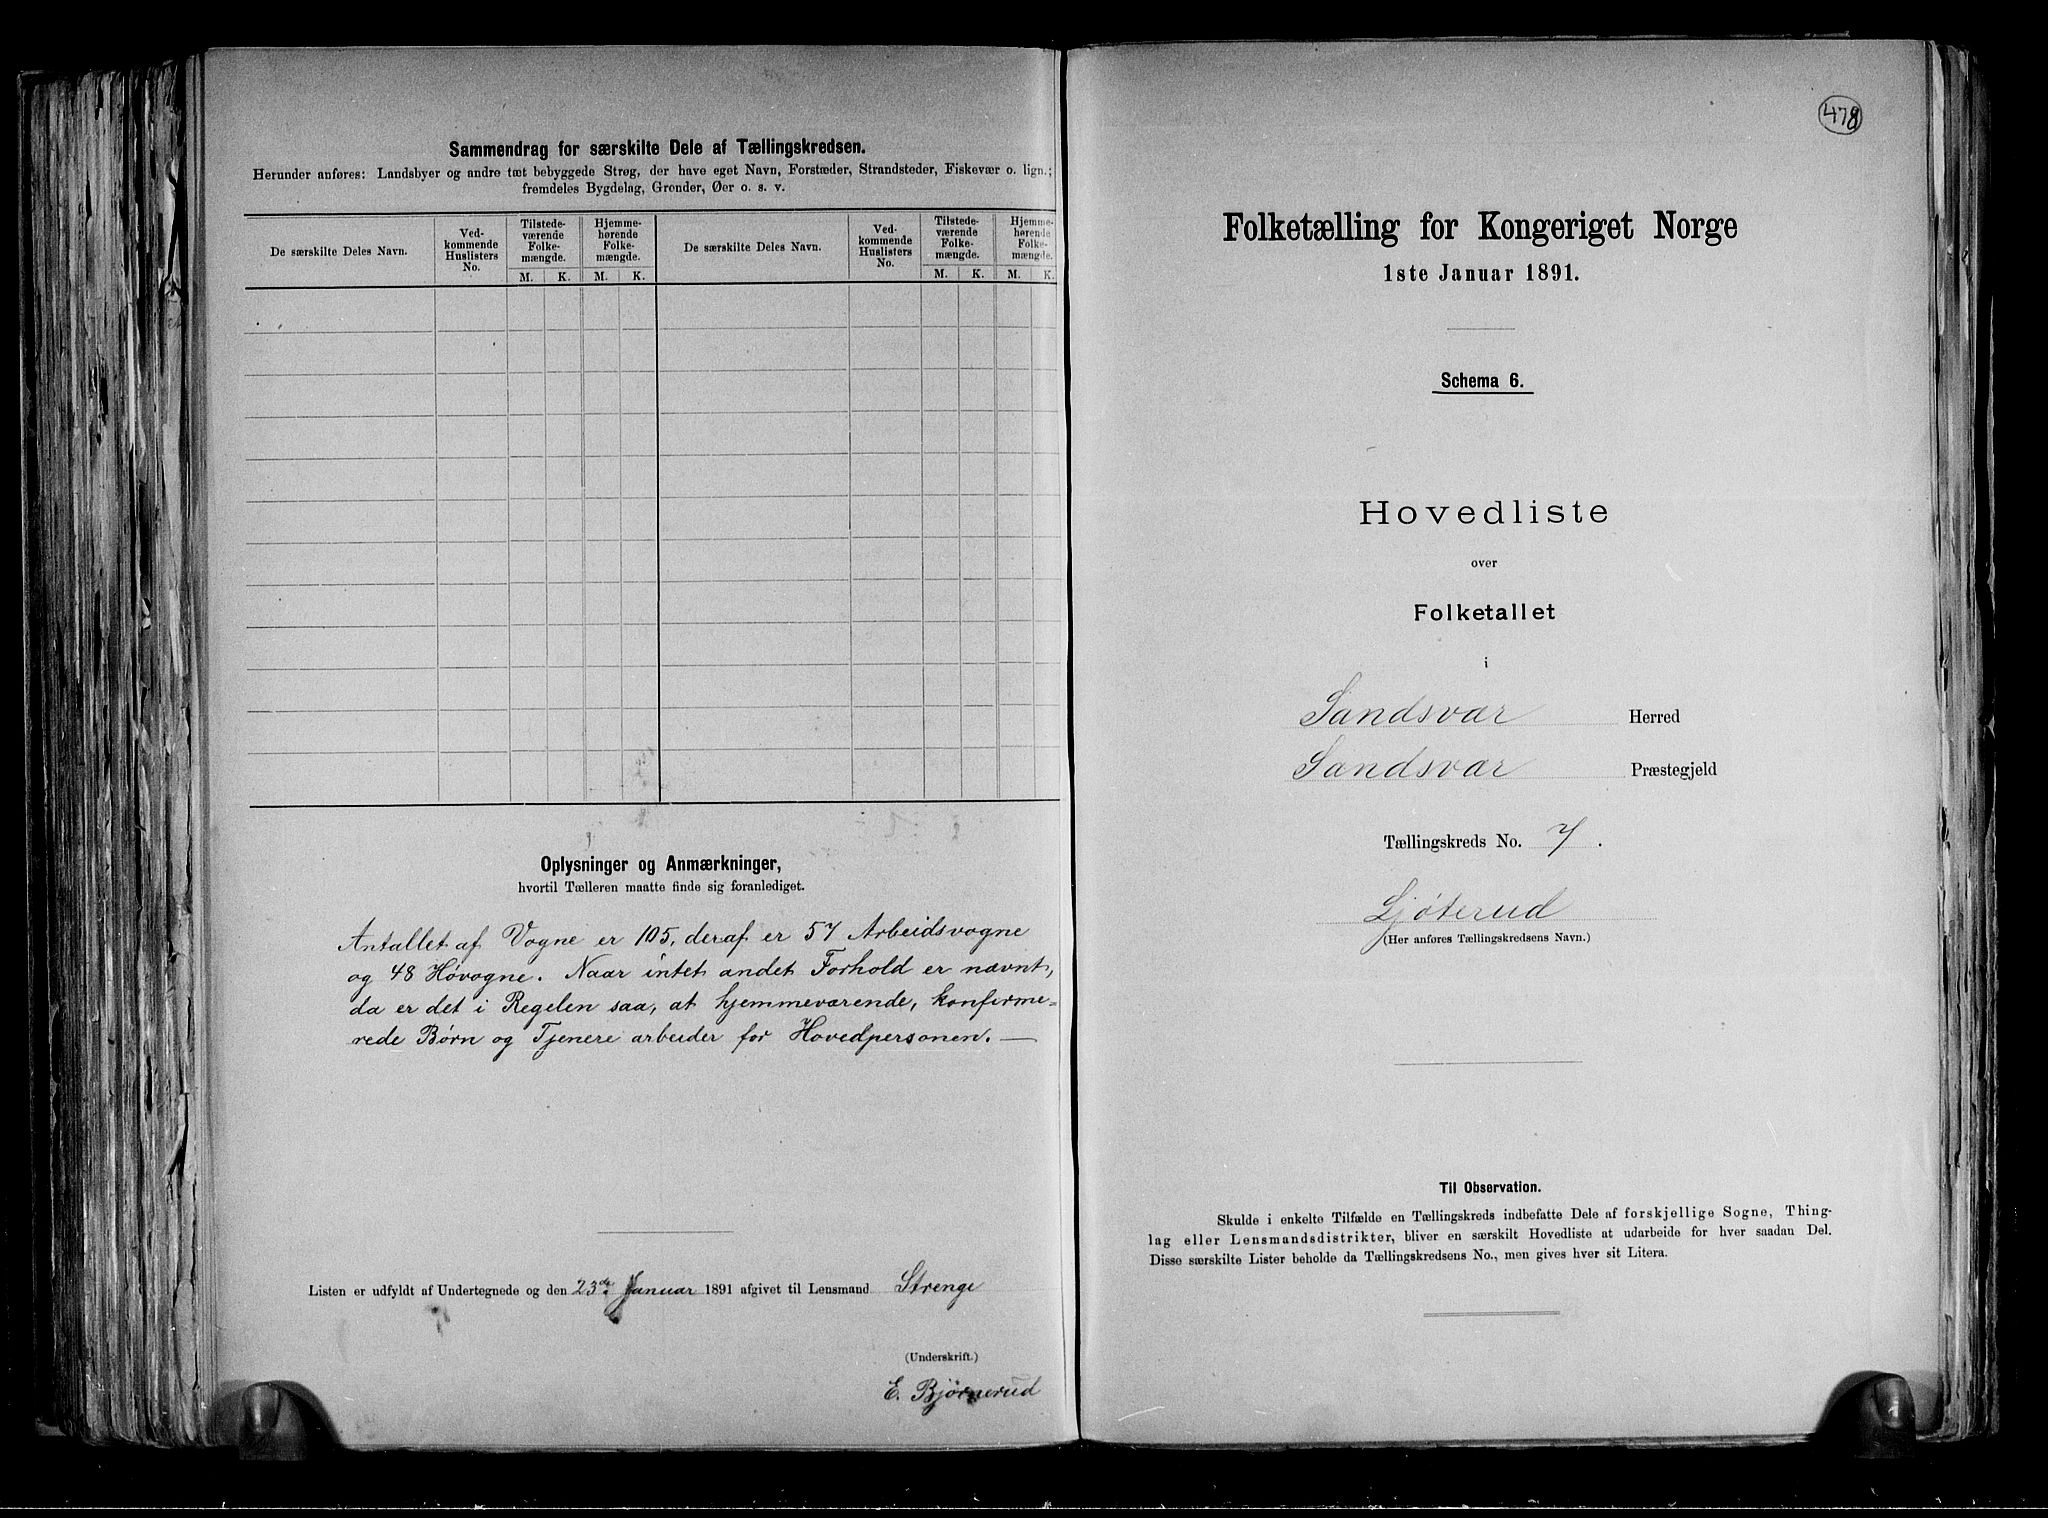 Sammendrag for særskilte Dele af Tællingskredsen.
Herunder anføres: Landsbyer og andre tæt bebyggede Strøg, der have eget Navn, Forstæder, Strandsteder, Fiskevær o. lign.;
fremdeles Bygdelag, Grender, Øer o. s. v.
De særskilte Deles Navn.
Ved-
kommende
Huslisters
No.
Tilstede-
værende
Folke-
mængde.
Hjemme-
hørende
Folke-
mængde.
M. K. M. K.
De særskilte Deles Navn.
Ved-
kommende
Huslisters
No.
Tilstede-
værende
Folke-
mængde.
Hjemme-
hørende
Folke-
mængde.
M. K. M. K.
Oplysninger og Anmærkninger,
hvortil Tælleren maatte finde sig foranlediget.
Antallet af Vogne er 105, deraf er 57 Arbeidsvogne
og 48 Høvogne. Naar intet andet Forhold er nævnt,
da er det i Regelen saa, at hjemmeværende, konfirme-
rede Børn og Tjenere arbeider for Hovedpersonen. —
Listen er udfyldt af Undertegnede og den 23de Januar 1891 afgivet til Lensmand Strenge
(Underskrift.)
E. Bjørnerud
478
Folketælling for Kongeriget Norge
1ste Januar 1891.
Schema 6.
Hovedliste
over
Folketallet
i
Sandsvær Herred
Sandsvær Præstegjeld
Tællingskreds No. 7.
Ljøterud
(Her anføres Tællingskredsens Navn.)
Til Observation.
Skulde i enkelte Tilfælde en Tællingskreds indbefatte Dele af forskjellige Sogne, Thing-
lag eller Lensmandsdistrikter, bliver en særskilt Hovedliste at udarbeide for hver saadan Del.
Disse særskilte Lister beholde da Tællingskredsens No., men gives hver sit Litera.